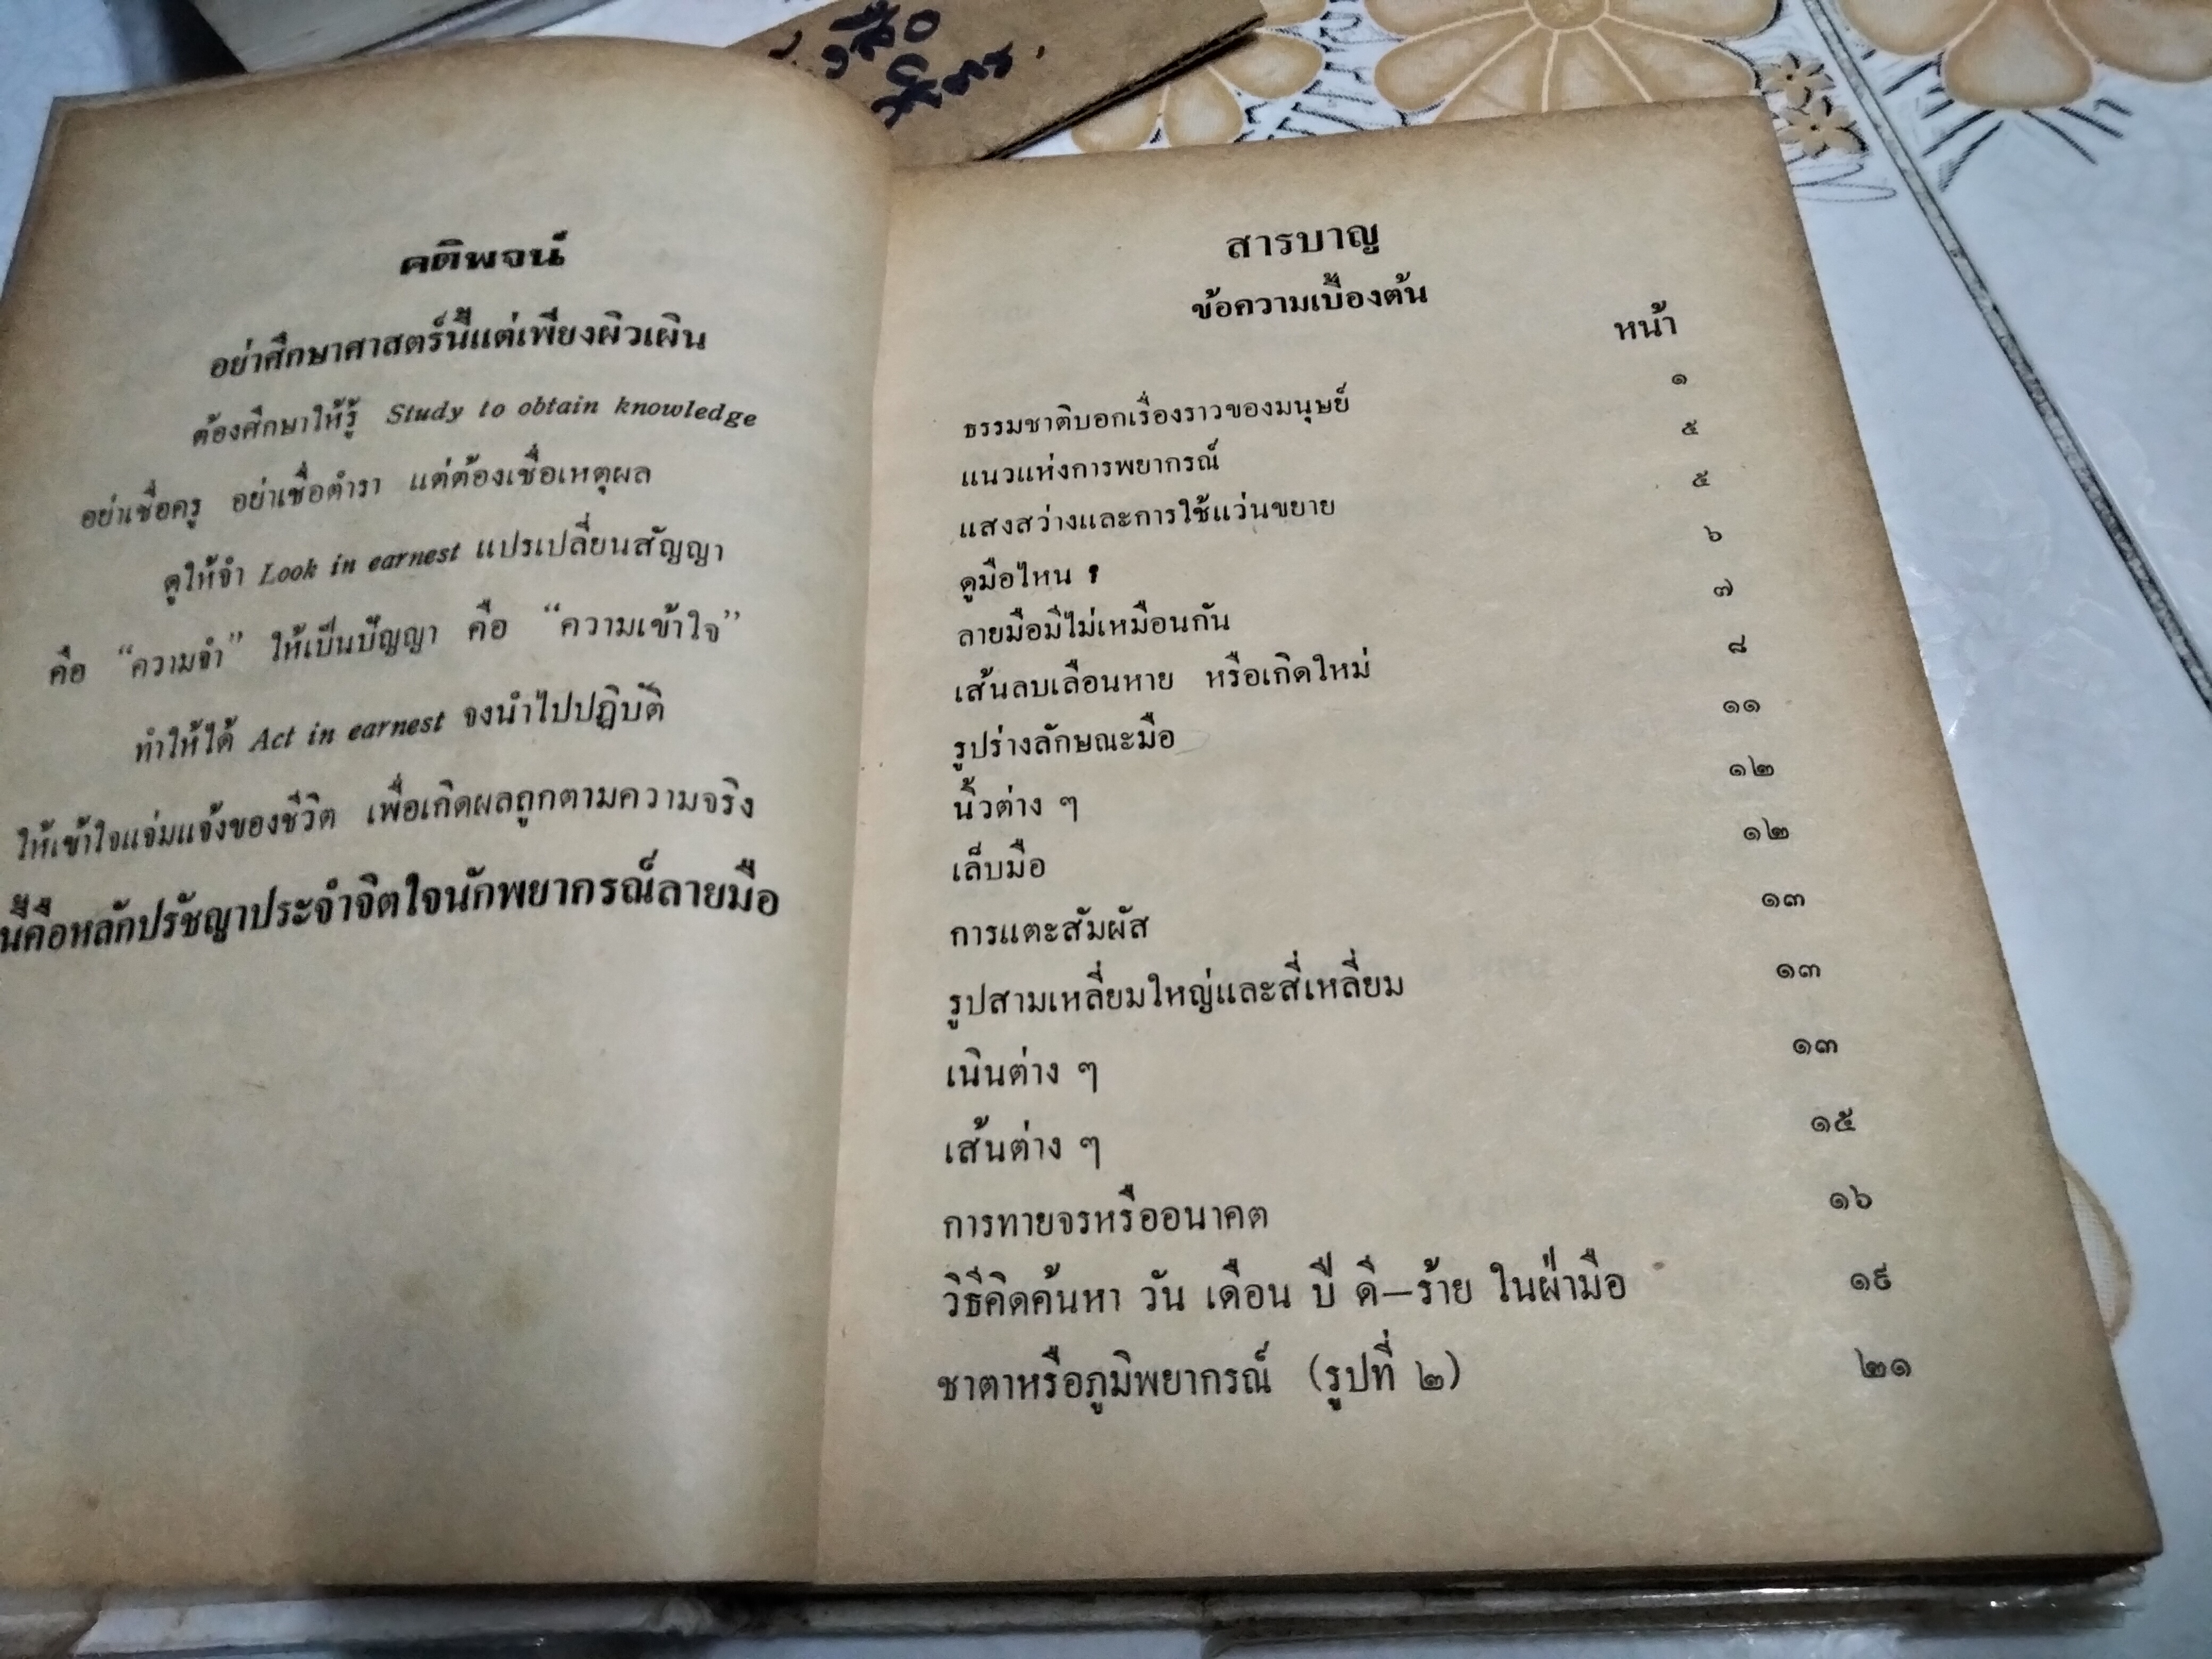 คติพจน์
อย่าศึกษาศาสตร์นี้แต่เพียงผิวเผิน
ต้องศึกษาให้รู้ Study to obtain knowledge
อย่าเชื่อครู อย่าเชื่อตำรา แต่ต้องเชื่อเหตุผล
ดูให้จำ Look in earnest แปรเปลี่ยนสัญญา
คือ “ความจำ” ให้เป็นปัญญา คือ “ความเข้าใจ”
ทำให้ได้ Act in earnest จงนำไปปฏิบัติ
ให้เข้าใจแจ่มแจ้งของชีวิต เพื่อเกิดผลถูกตามความจริง
นี้คือหลักปรัชญาประจำจิตใจนักพยากรณ์ลายมือ
สารบาญ
ข้อความเบื้องต้น
หน้า
ธรรมชาติบอกเรื่องราวของมนุษย์ ๑
แนวแห่งการพยากรณ์ ๕
แสงสว่างและการใช้แว่นขยาย ๕
ดูมือไหน ? ๖
ลายมือมีไม่เหมือนกัน ๗
เส้นลบเลือนหาย หรือเกิดใหม่ ๘
รูปร่างลักษณะมือ ๑๑
นิ้วต่าง ๆ ๑๒
เล็บมือ ๑๒
การแตะสัมผัส ๑๓
รูปสามเหลี่ยมใหญ่และสี่เหลี่ยม ๑๓
เนินต่าง ๆ ๑๓
เส้นต่าง ๆ ๑๕
การทายจรหรืออนาคต ๑๖
วิธีคิดค้นหา วัน เดือน ปี ดี—ร้าย ในฝ่ามือ ๑๙
ชาตาหรือภูมิพยากรณ์ (รูปที่ ๒) ๒๑